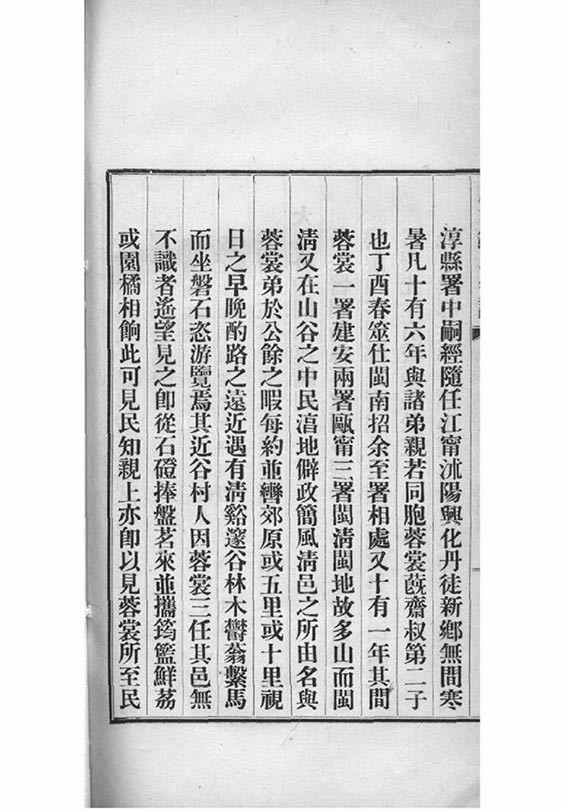 淳縣署中嗣經隨任江甯沭陽興化丹徒新鄉無間寒
暑凡十有六年與諸弟親若同胞蓉裳蓺齋叔第二子
也丁酉春筮仕閩南招余至署相處又十有一年其間
蓉裳一署建安兩署甌甯三署閩清閩地故多山而閩
清又在山谷之中民湻地僻政簡風清邑之所由名與
蓉裳弟於公餘之暇每約並轡郊原或五里或十里視
日之早晚酌路之遠近遇有清谿邃谷林木鬱蓊繫馬
而坐磐石恣游覽焉其近谷村人因蓉裳三任其邑無
不識者遙望見之卽從石磴捧盤茗來並攜筠籃鮮荔
或園橘相餉此可見民知親上亦卽以見蓉裳所至民